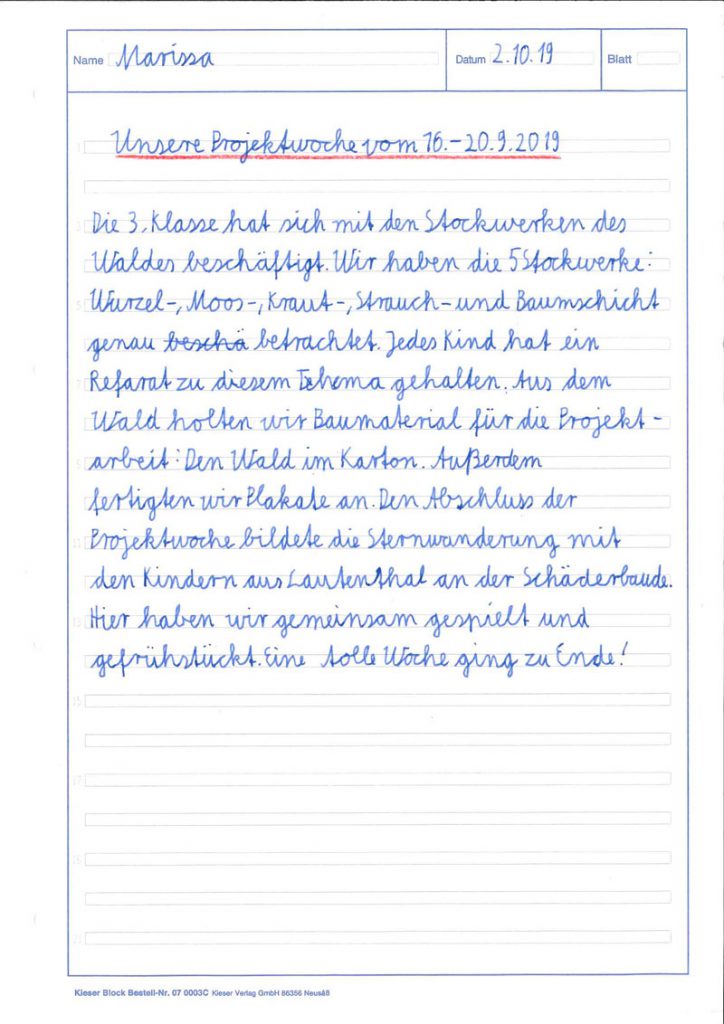 Name Marissa Datum 2.10.19 Blatt
Unsere Projektwoche vom 16.-20.9.2019
Die 3. Klasse hat sich mit den Stockwerken des
Waldes beschäftigt. Wir haben die 5 Stockwerke:
Wurzel-, Moos-, Kraut-, Strauch- und Baumschicht
genau beschä betrachtet. Jedes Kind hat ein
Refarat zu diesem Thema gehalten. Aus dem
Wald holten wir Baumaterial für die Projekt-
arbeit: Den Wald im Karton. Außerdem
fertigten wir Plakate an. Den Abschluss der
Projektwoche bildete die Sternwanderung mit
den Kindern aus Lautenthal an der Schäderbaude.
Hier haben wir gemeinsam gespielt und
gefrühstückt. Eine tolle Woche ging zu Ende!
Kieser Block Bestell-Nr. 07 0003C Kieser Verlag GmbH 86356 Neusäß